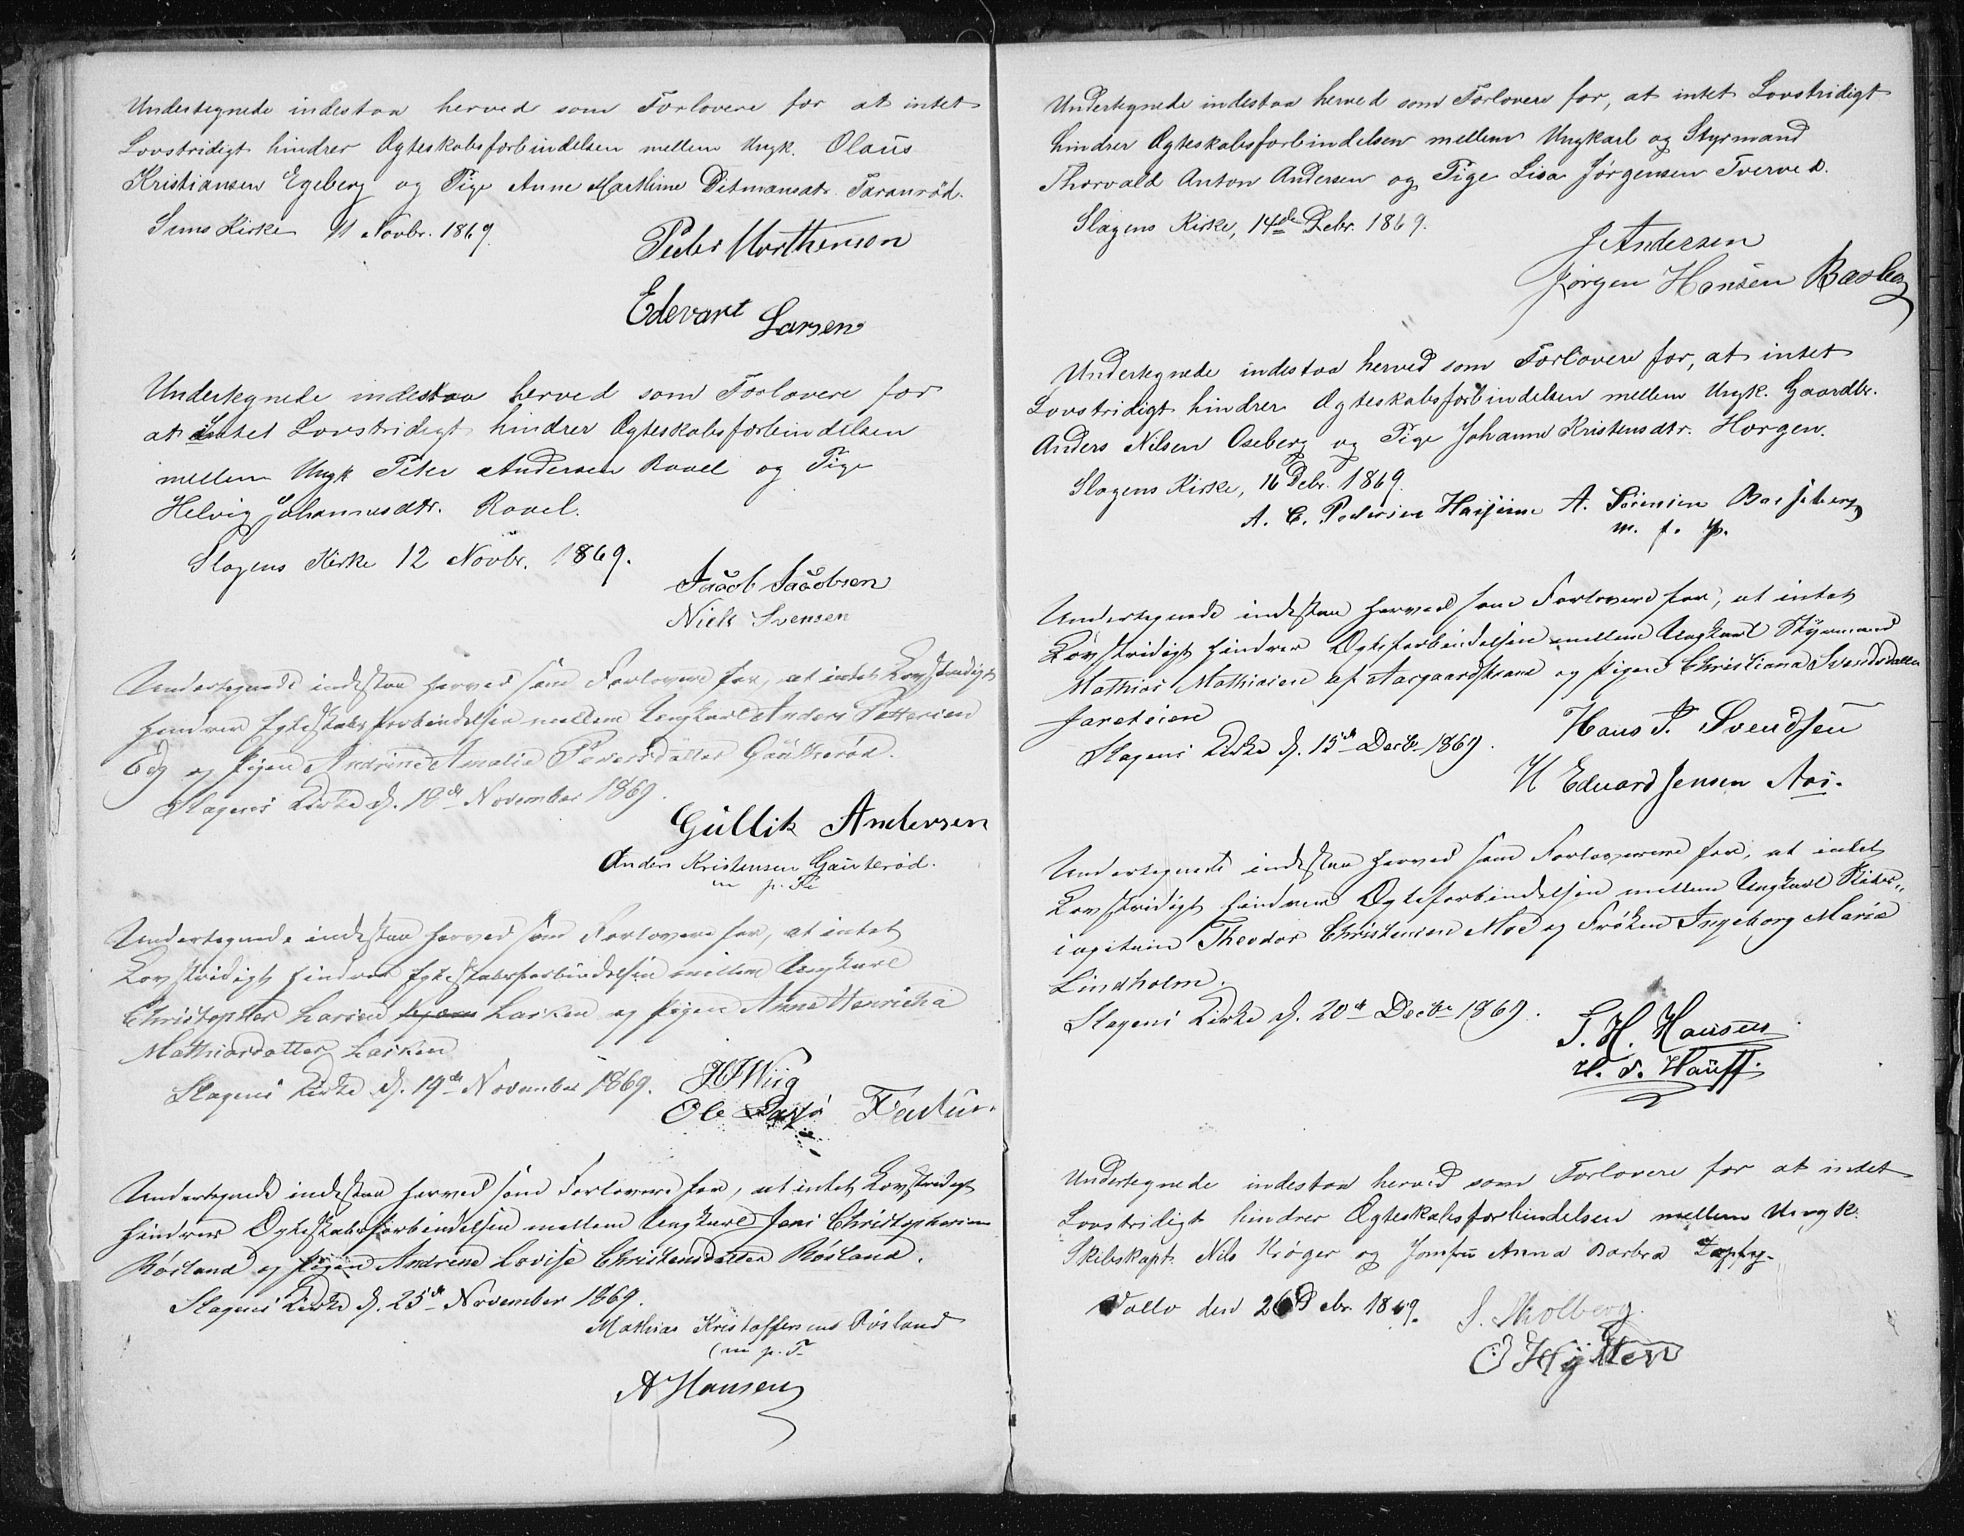 Undertegnede indestaa herved som Forlovere for at intet
Lovstridigt hindrer Ægteskabsforbindelsen mellem Ungk. Olaus
Kristiansen Egeberg og Pige Anne Marthine Ditmansdtr. Taranrød.
Sems Kirke 11 Novbr. 1869.
Peder Morthenson
Edevart Larsen
Undertegnede indestaa herved som Forlovere for
at intet Lovstridigt hindrer Ægteskabsforbindelsen
mellem Ungk Peter Andersen Rovel og Pige
Helvig Johannesdtr. Rovel.
Slagens Kirke 12 Novbr. 1869.
Jacob Jacobsen
Niels Svensen
Undertegnede indestaa herved som Forlovere for, at intet Lovstridigt
hindrer Egteskabsforbindelsen mellem Ungkarl Anders Pettersen
og Pigen Andrine Amalie Pedersdatter Gauterød.
Slagens Kirke d. 18de November 1869.
Gullik Andersen
Anders Kristensen Gauterød.
m p. F
Undertegnede indestaa herved som Forlovere for, at intet
Lovstridigt hindrer Egteskabsforbindelsen mellem Ungkarl
Christopher Larsen Larken og Pigen Anne Henricha
Mathiasdatter Larken
Slagens Kirke d. 19de November 1869.
Ole
Undertegnede indestaa herved som Forlovere for, at intet Lovstridigt
hindrer Ægteskabsforbindelsen mellem Ungkarl Jens Christophersen
Røsland og Pigen Andrine Lovise Christensdatter Røsland.
Slagens Kirke d. 25de November 1869.
Mathias Kristoffersens Røsland
m p. F.
A Hansen
Undertegnede indestaa herved som Forlovere for, at intet Lovstridigt
hindrer Ægteskabsforbindelsen mellem Ungkarl og Styrmand
Thorvald Anton Andersen og Pige Lisa Jørgensen Tverved.
Slagens Kirke, 14de Debr. 1869.
J Andersen
Jørgen Hansen Basberg
Undertegnede indestaa herved som Forlovere for, at intet
Lovstridigt hindrer Ægteskabsforbindelsen mellem Ungk. Gaardbr.
Anders Nilsen Oseberg og Pige Johanne Kristensdtr. Horgen.
Slagens Kirke, 16 Debr. 1869.
A. C. Pedersen A. Sørensen Basberg
m. f. p.
Undertegnede indestaa herved som Forlovere for, at intet
Lovstridigt hindrer Ægteforbindelsen mellem Ungkarl Styrmand
Mathias Mathiasen af Aasgaardstrand og Pigen Christiana Svendsdatter
Jareteien
Slagens Kirke d. 15de Decbr 1869.
Hans P. Svendsen
H Edvard Jensen Aas.
Undertegnede indestaa herved som Forlovere for, at intet
Lovstridigt hindrer Ægteforbindelsen mellem Ungkarl Skibs-
capitain Theodor Christensen Moe og Frøken Ingeborg Marie
Lindholm.
Slagens Kirke d. 20de Decbr 1869.
T. H. Hansen
Hauff.
Undertegnede indestaa herved som Forlovere for at intet
Lovstridigt hindrer Ægteskabsforbindelsen mellem Ungk.
Skibskapt. Nils Krøger og Jomfru Anna Barbra
Vallø den 26 Debr. 1869.
S. Stolberg.
O Hytten